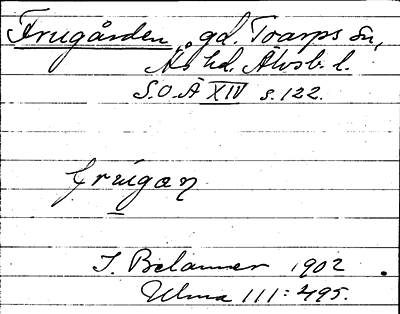 Frugården, gd. Toarps sn,
Ås hd. Älvsb. l.
S.O.Ä XIV s. 122.
frugan
1902
Ulma 111:495.